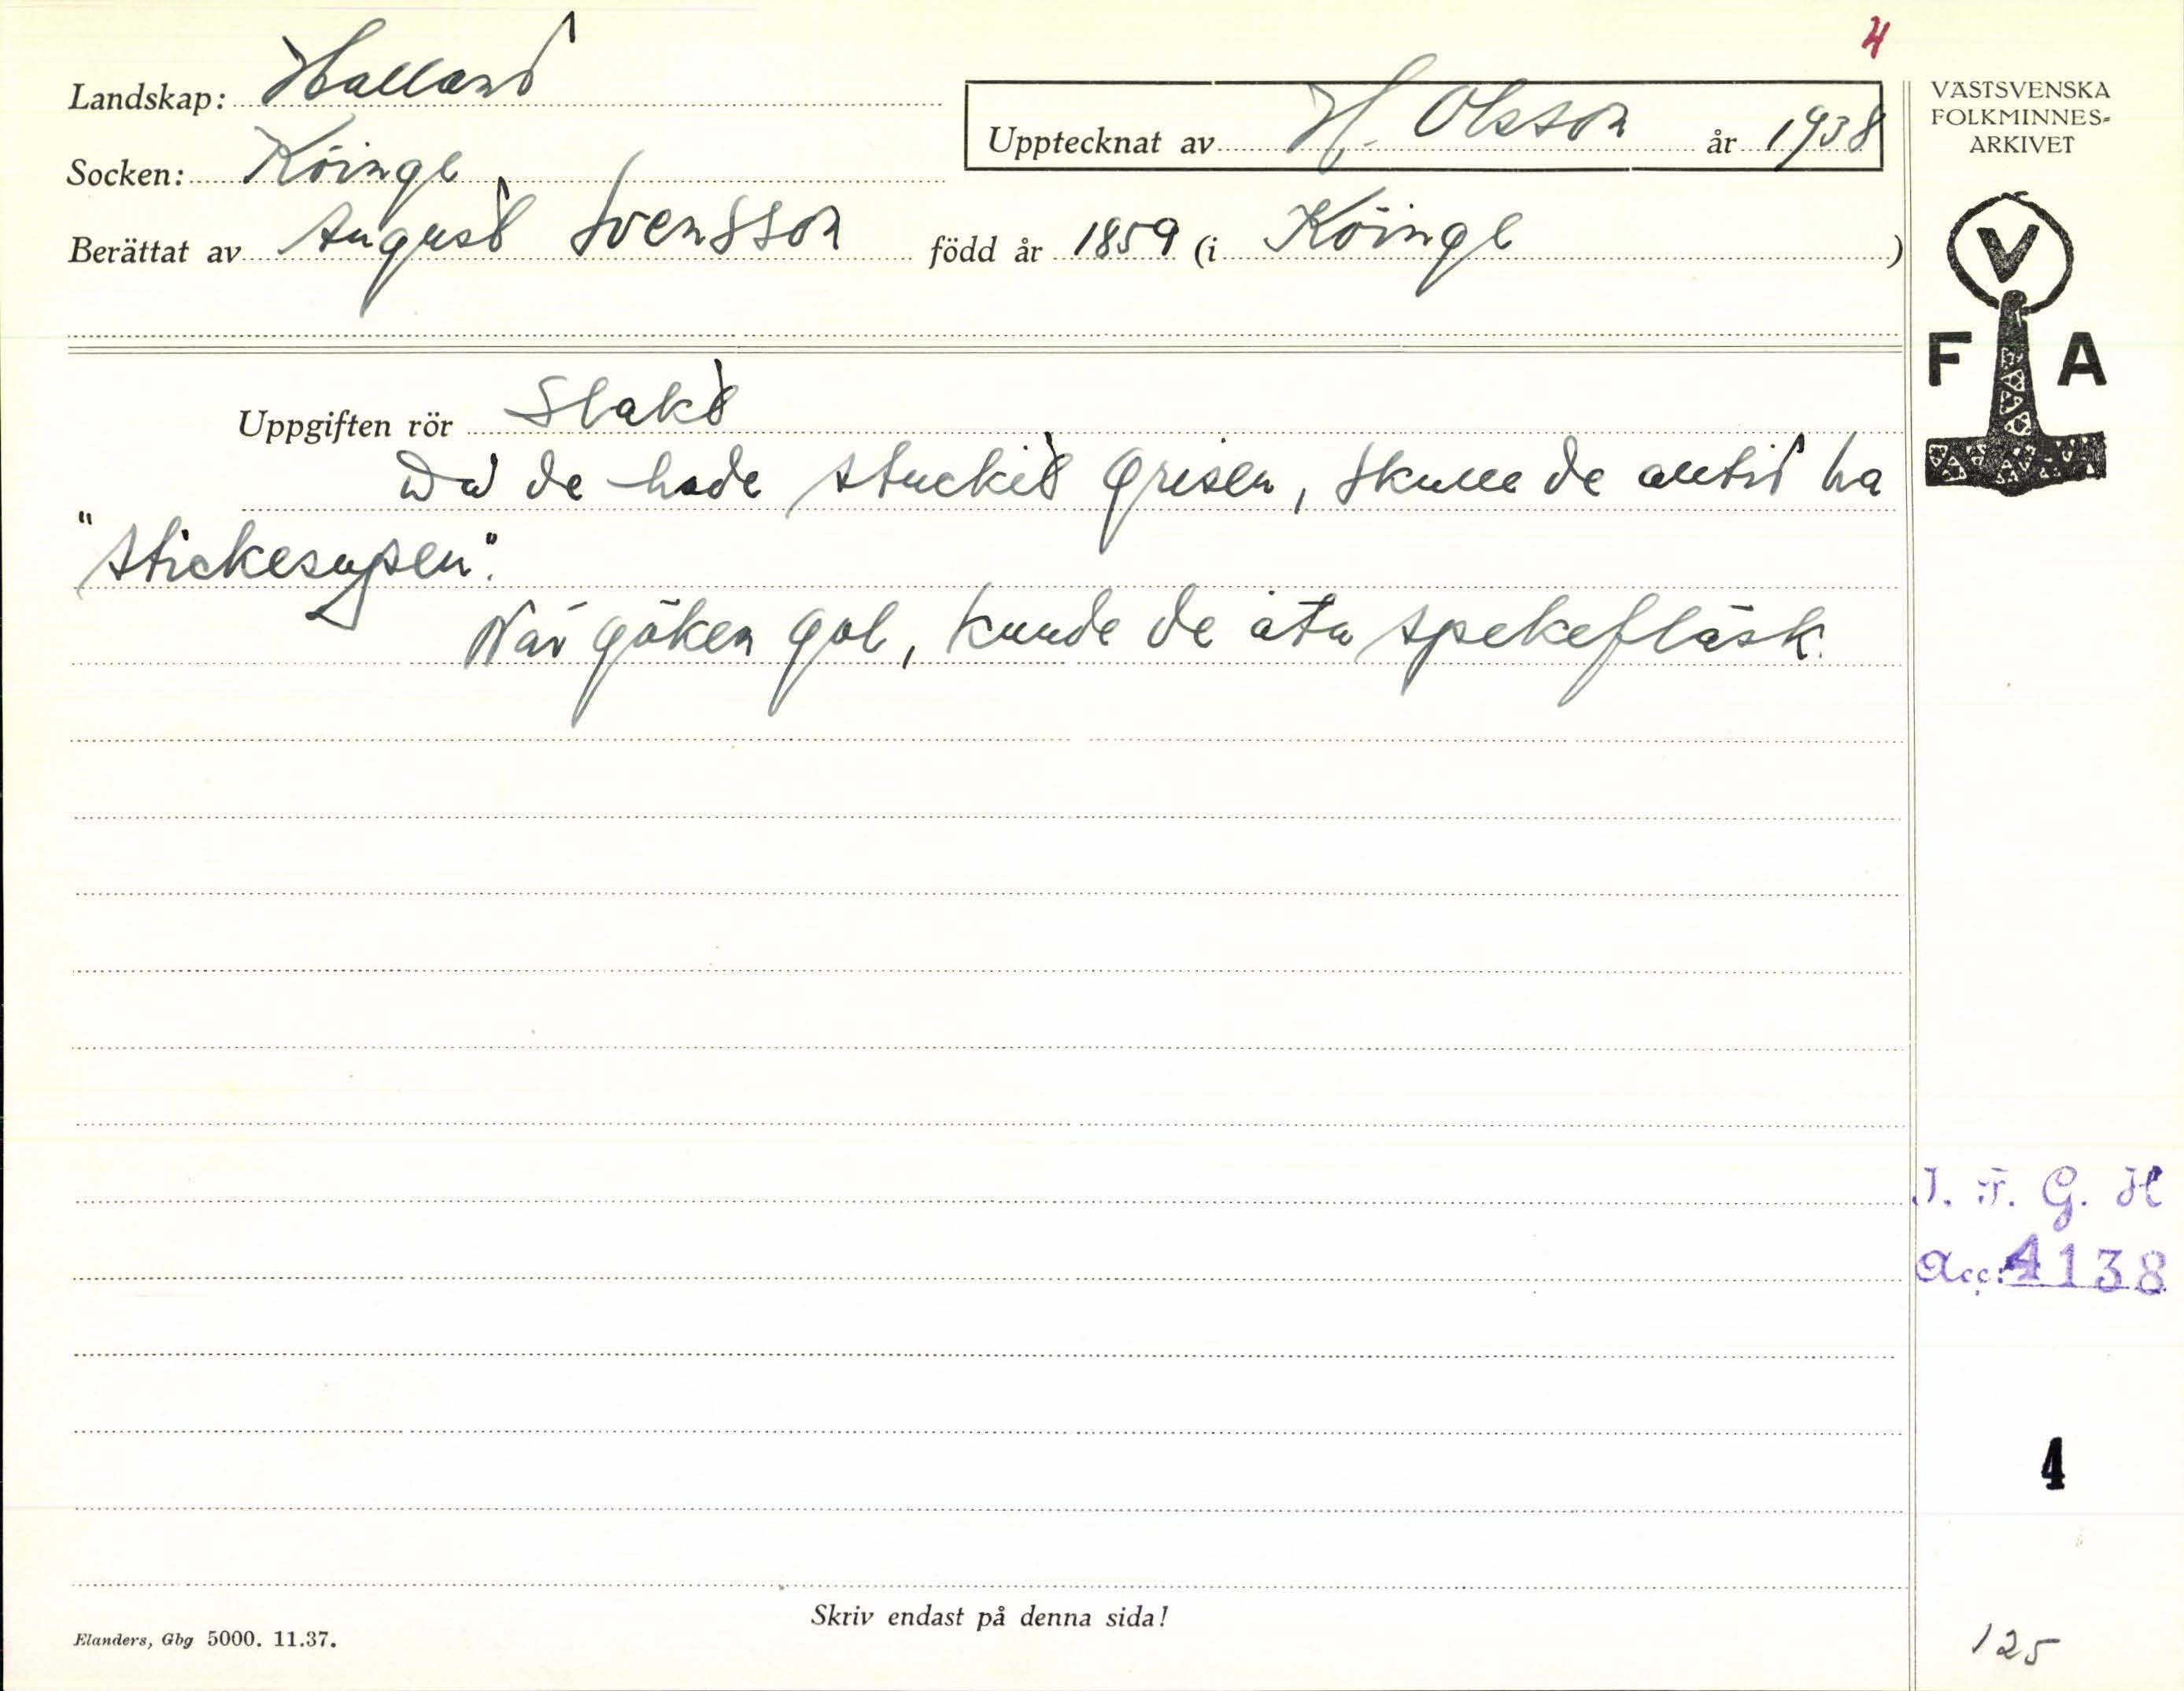 4
Landskap: Halland
Upptecknat av H. Olsson år 1938
Socken: Köinge
Berättat av August Svensson född år 1859 (i Köinge )
VÄSTSVENSKA
FOLKMINNES-
ARKIVET
V
F A
Uppgiften rör Slakt
Då de hade stuckit grisen, skulle de alltid ha
"stickesupen".
När göken gol, kunde de äta spekefläsk.
I. F. G. H
Acc: 4138
4
Skriv endast på denna sida!
Elanders, Gbg 5000. 11.37.
125